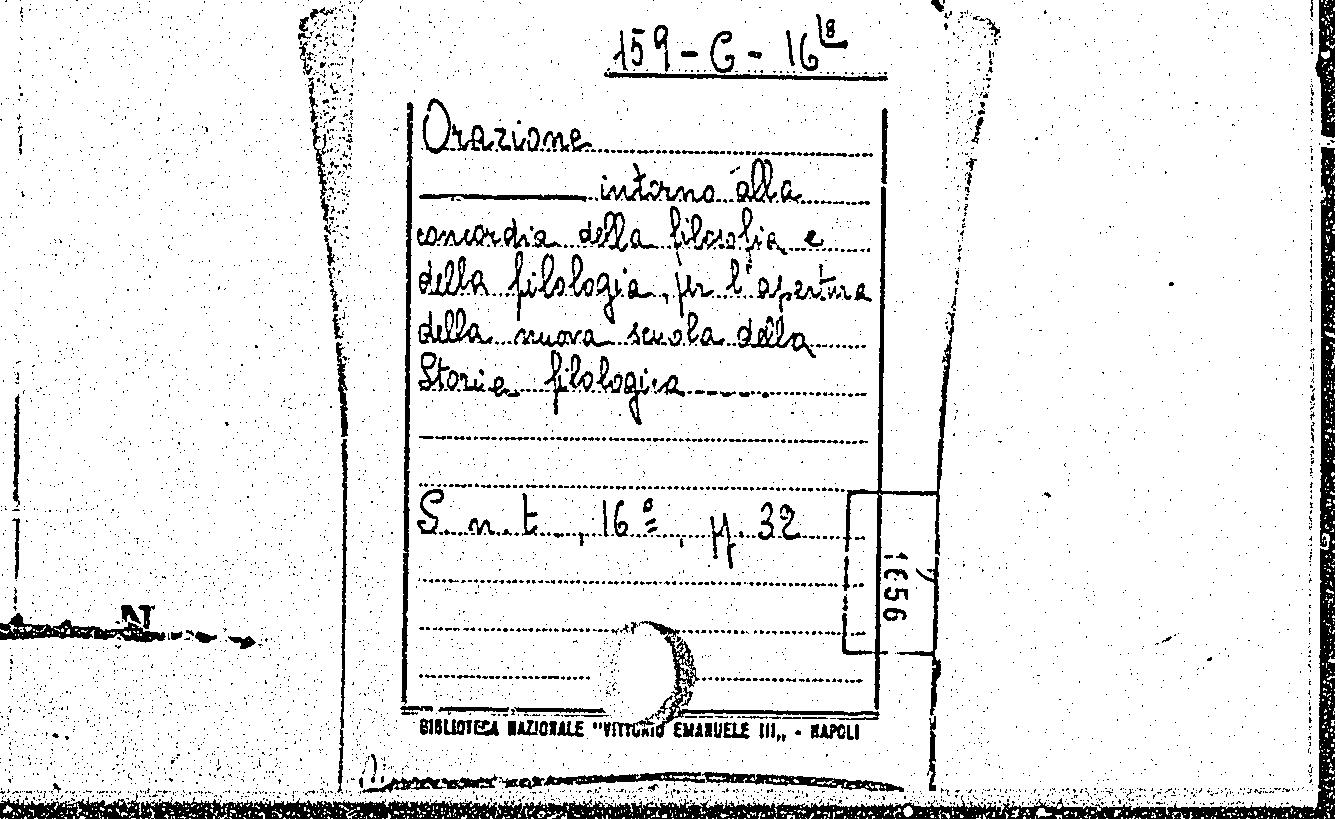 159 - G - 16 18
Orazione
intorno alla
concordia della filosofia e
della filologia, per l'apertura
della nuova scuola della
Storia filologica
S. n. t., 16º, p. 32
1656
N
BIBLIOTECA NAZIONALE "VITTORIO EMANUELE III„ - NAPOLI